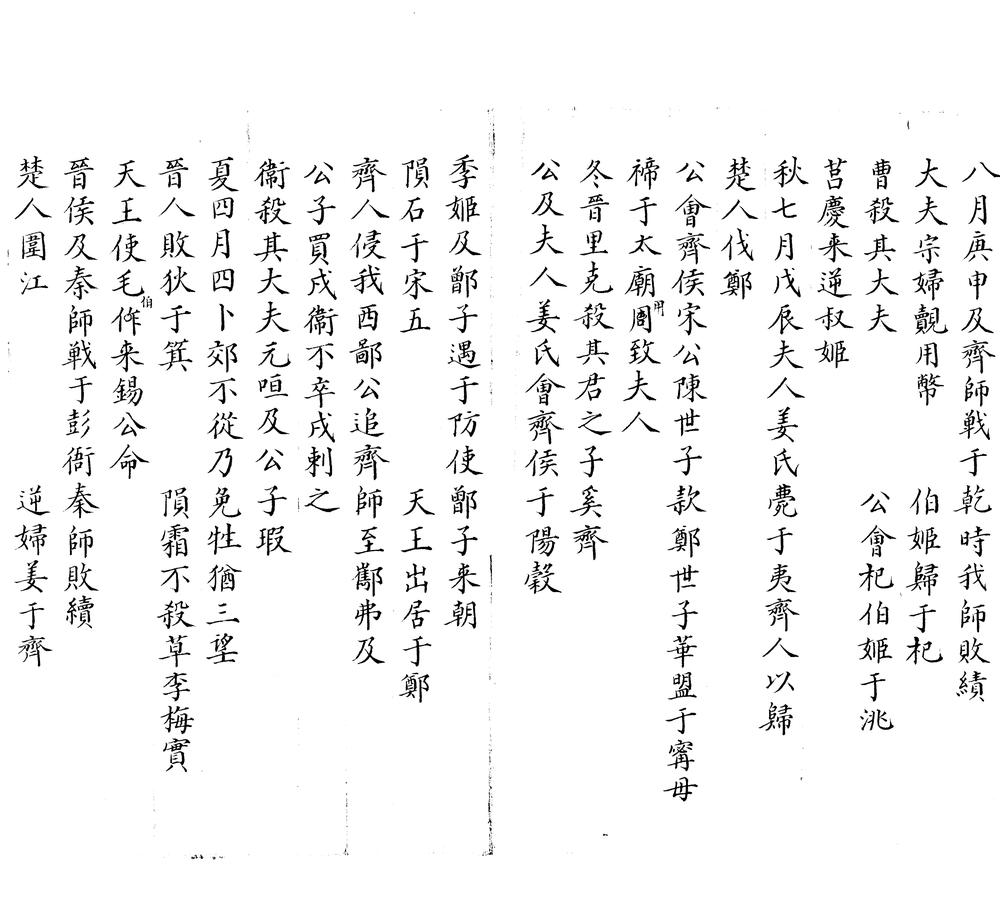 八月庚申及齊師戰于乾時我師敗績
大夫宗婦覿用幣　伯姬歸于杞
曹殺其大夫　公會杞伯姬于洮
莒慶来逆叔姬
秋七月戊辰夫人姜氏薨于夷齊人以歸
楚人伐鄭
公會齊侯宋公陳世子款鄭世子華盟于甯毋
禘于太廟用致夫人
冬晉里克殺其君之子奚齊
公及夫人姜氏會齊侯于陽穀
季姬及鄫子遇于防使鄫子来朝
隕石于宋五　天王出居于鄭
齊人侵我西鄙公追齊師至酅弗及
公子買戍衞不卒戍刺之
衞殺其大夫元咺及公子瑕
夏四月四卜郊不從乃免牲猶三望
晉人敗狄于箕　隕霜不殺草李梅實
天王使毛伯来錫公命
晉侯及秦師戰于彭衙秦師敗績
楚人圍江　逆婦姜于齊